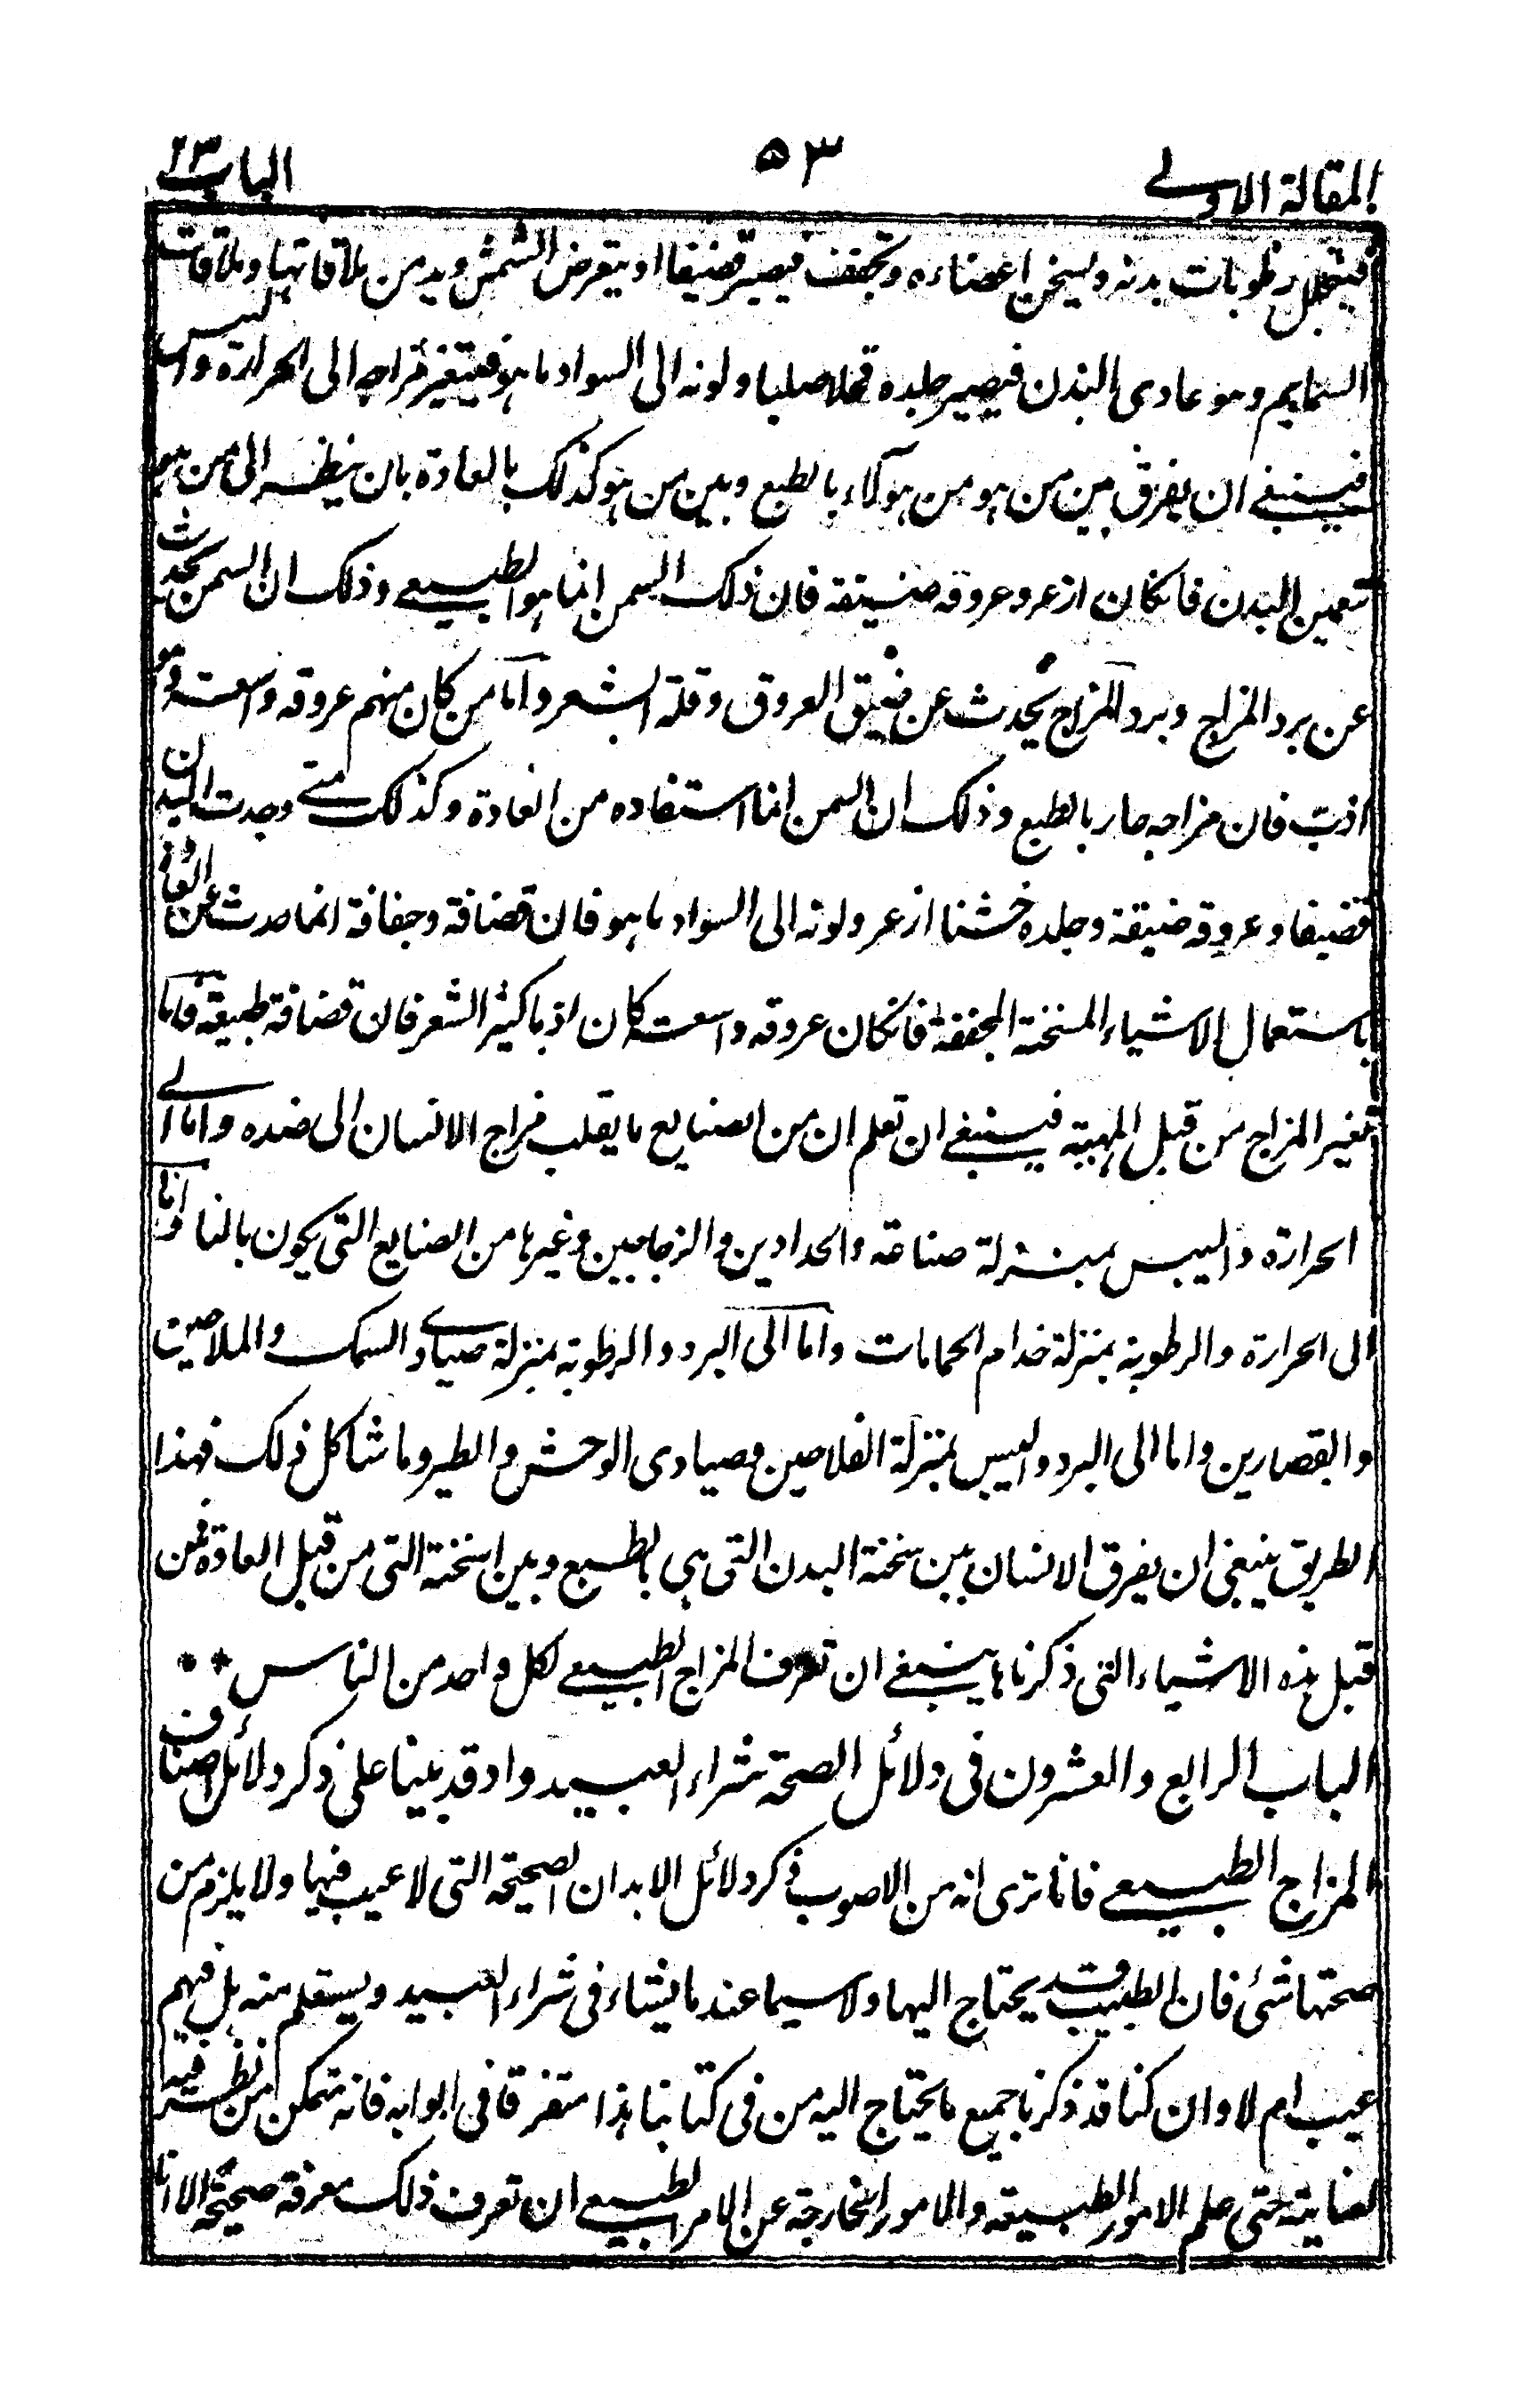 المقالة الاولى ٥٣ الباب ٢٣
فيتحلل رطوبات بدنه ويسخن اعضاءه وتجفف فيصير قضيفا او يتعرض الشمس ويدمن ملاقاتها وملاقات
السمايم وهو عادى البدن فيصير جلده قحلا صلبا ولونه الى السواد ما هو فيتغير مزاجه الى الحرارة واليبس
فينبغى ان يفرق بين من هو من هولاء بالطبع وبين من هو كذلك بالعادة بان ينظر الى من هو
سمين البدن فانكان ازعر وعروقه ضيقة فان ذلك السمن انما هو الطبيعى وذلك ان السمن يحدث
عن برد المزاج وبرد المزاج يحدث عن ضيق العروق وقلة الشعر واما من كان منهم عروقه واسعة وهو
اذب فان مزاجه حار بالطبع وذلك ان السمن انما استفاده من العادة وكذلك متى وجدت البدن
قضيفا وعروقه ضيقة وجلده خشنا ازعر ولونه الى السواد ما هو فان قضافة وجفافة انما حدث عن العادة
باستعمال الاشياء المسخنة المجففة فانكان عروقه واسعة كان اذبا كثير الشعر فان قضافة طبيعة فاما
تغير المزاج من قبل المهنة فينبغى ان تعلم ان من الصنايع ما يقلب مزاج الانسان الى ضده واما الى
الحرارة واليبس بمنزلة صناعة والحدادين والزجاجين وغيرها من الصنايع التى يكون بالنار واما
الى الحرارة والرطوبة بمنزلة خدام الحمامات واما الى البرد والرطوبة بمنزلة صيادى السمك والملاحين
والقصارين واما الى البرد واليبس بمنزلة الفلاحين وصيادى الوحش والطير وما شاكل ذلك فهذا
الطريق ينبغى ان يفرق الانسان بين سخنة البدن التى هي بالطبع وبين السخنة التى من قبل العادة فمن
قبل هذه الاشياء التى ذكرناها ينبغى ان تعرف المزاج الطبيعى لكل واحد من الناس **
الباب الرابع والعشرون فى دلائل الصحة شراء العبيد واد قد بينا على ذكر دلائل اصناف
المزاج الطبيعى فانا نرى انه من الاصوب ذكر دلائل الابدان الصحيحة التى لا عيب فيها ولا يلزم من
صحتها شئ فان الطبيب قد يحتاج اليها ولاسيما عندما يشاء فى شراء العبيد ويستعلم منه بل فيهم
عيب ام لا وان كنا قد ذكرنا جميع ما يحتاج اليه من فى كتابنا هذا متفرقا فى ابوابه فانه متمكن من نظر فيه
لعناية حتى علم الامور الطبيعة والامور الخارجة عن الامر الطبيعى ان تعرف ذلك معرفة صحيحة الا انا